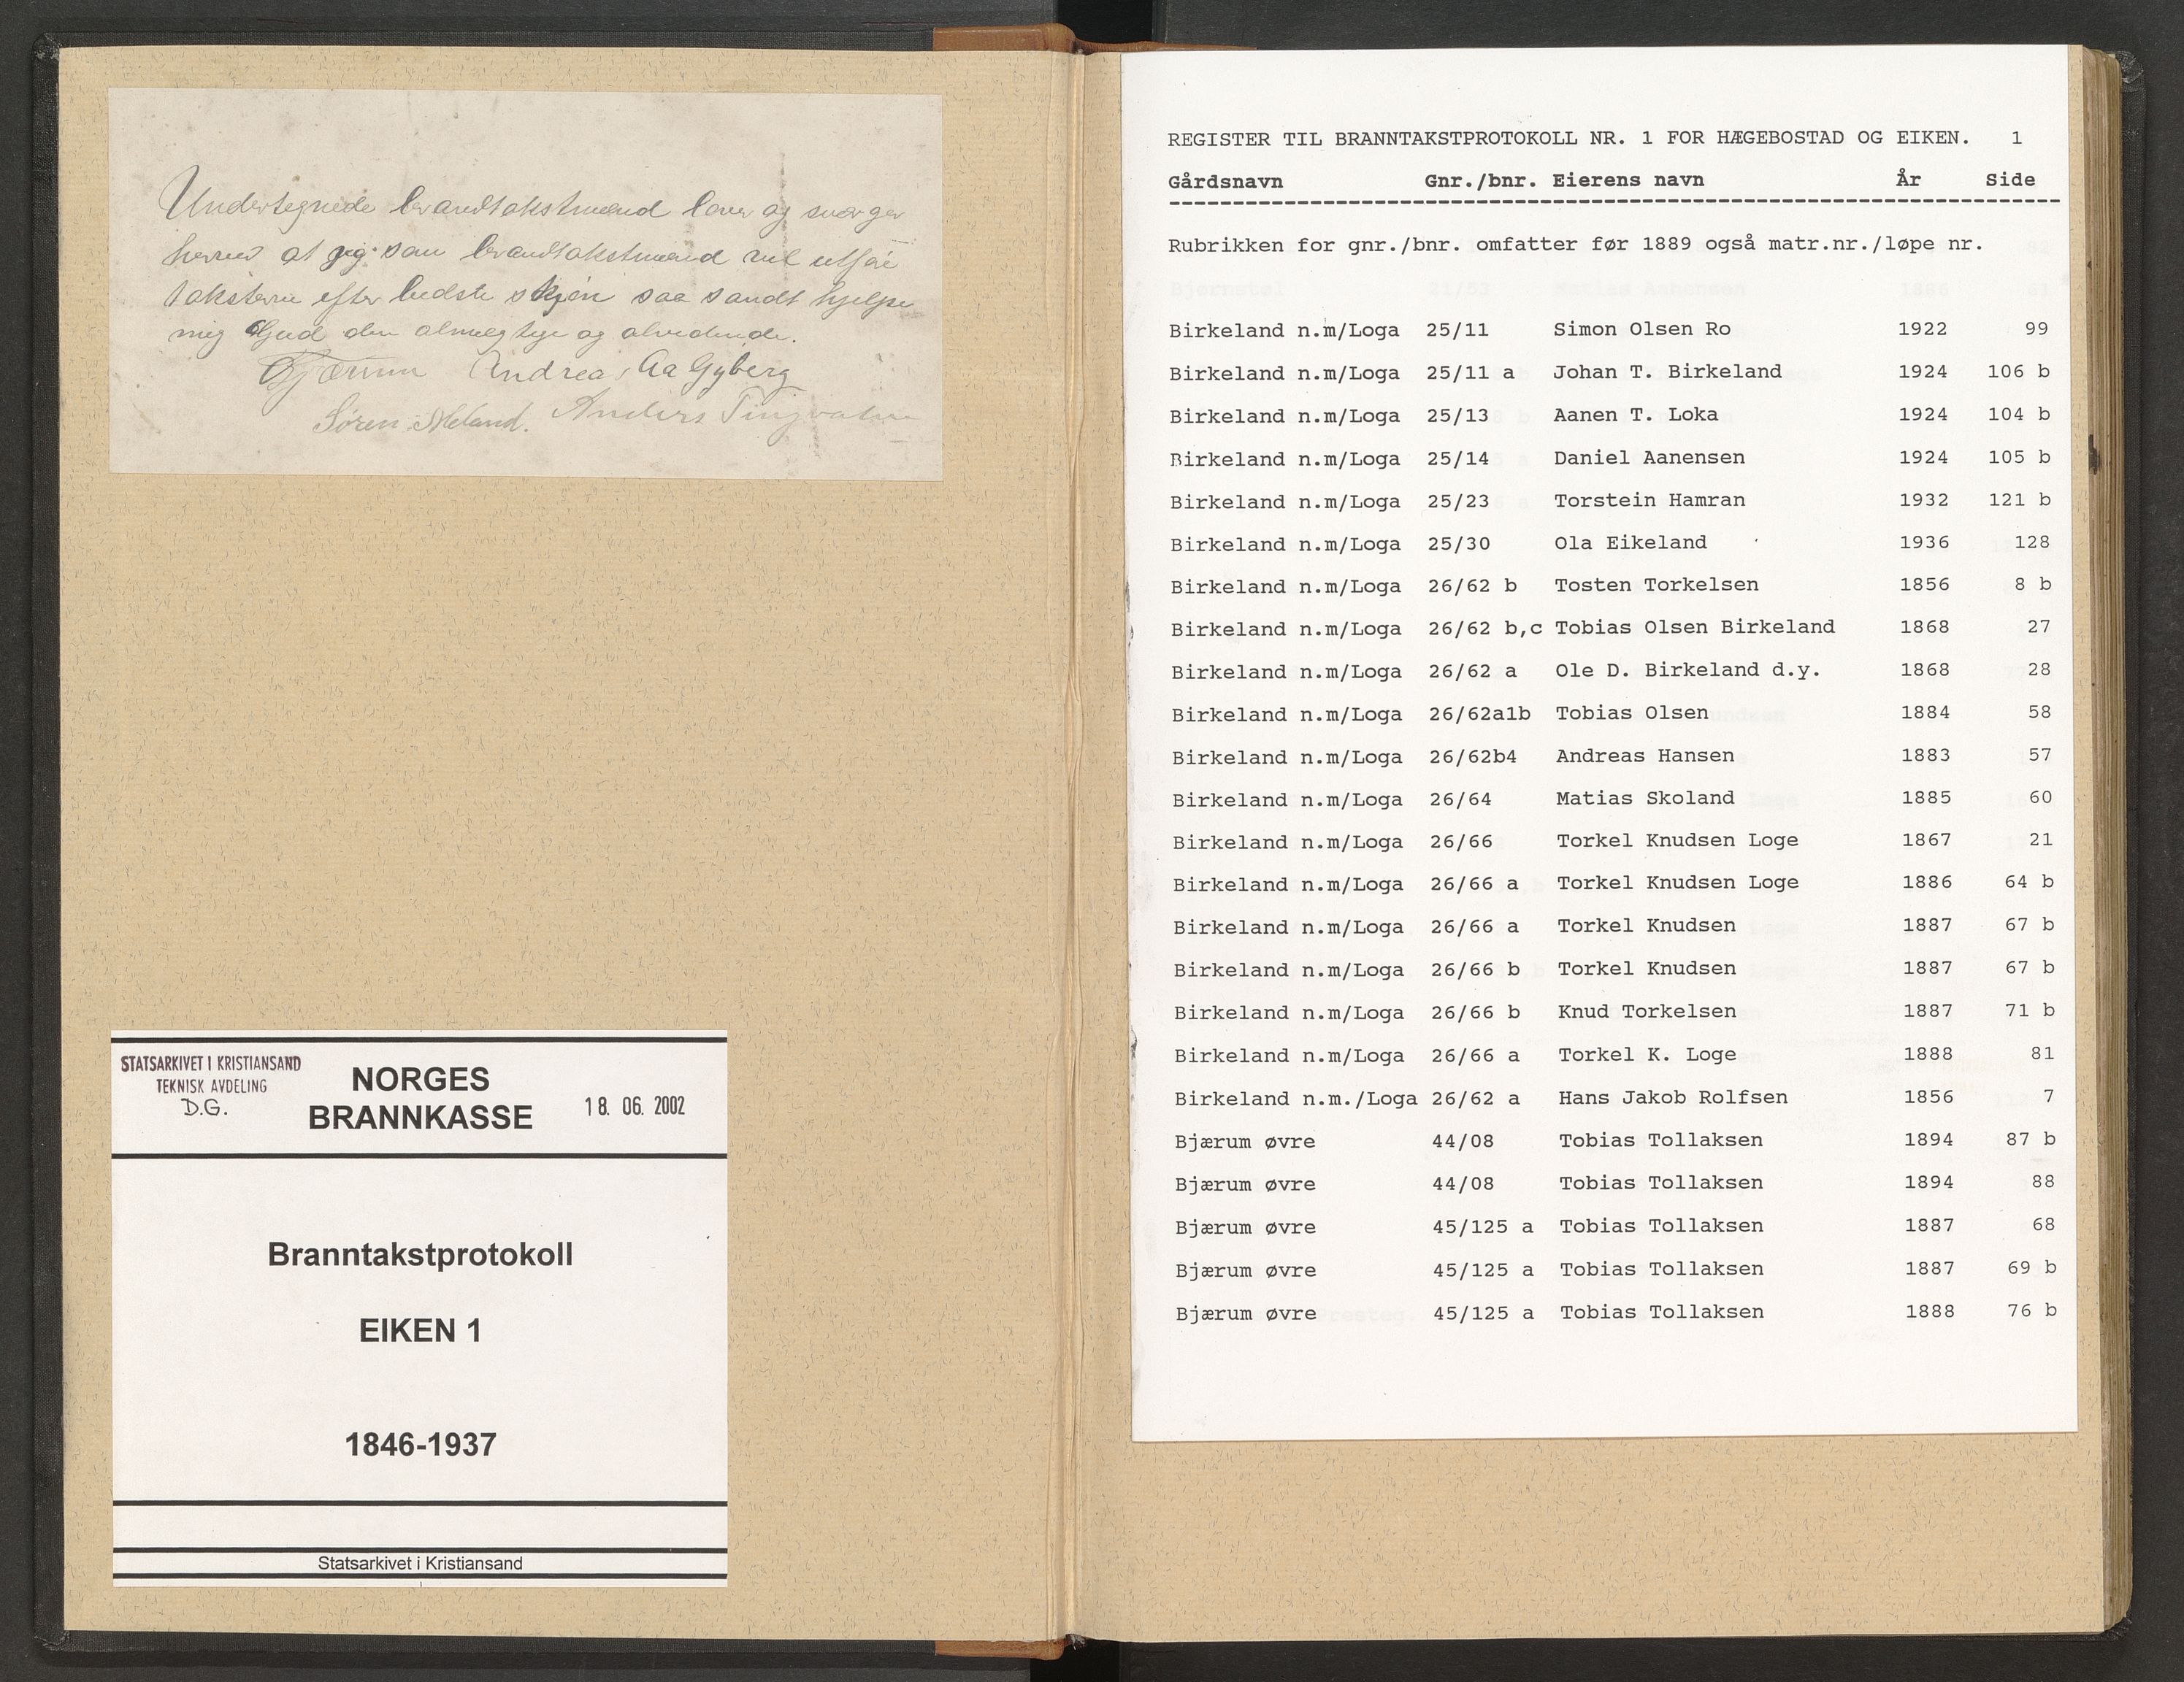 Undertegnede brandtakstmænd lover og sværger
herved at jeg som brandtakstmænd vil utføre
taksterne efter bedste skjøn saa sandt hjelpe
mig Gud den almegtige og alvidende.
Bjærum Andreas Aa Gyberg
Søren Aeland. Anders Tingvatn
STATSARKIVET I KRISTIANSAND
TEKNISK AVDELING
D.G.
NORGES
BRANNKASSE
18. 06. 2002
Branntakstprotokoll
EIKEN 1
1846-1937
Statsarkivet i Kristiansand
REGISTER TIL BRANNTAKSTPROTOKOLL NR. 1 FOR HÆGEBOSTAD OG EIKEN. 1
Gårdsnavn Gnr./bnr. Eierens navn År Side
Rubrikken for gnr./bnr. omfatter før 1889 også matr.nr./løpe nr.
Birkeland n.m/Loga 25/11 Simon Olsen Ro 1922 99
Birkeland n.m/Loga 25/11 a Johan T. Birkeland 1924 106 b
Birkeland n.m/Loga 25/13 Aanen T. Loka 1924 104 b
Birkeland n.m/Loga 25/14 Daniel Aanensen 1924 105 b
Birkeland n.m/Loga 25/23 Torstein Hamran 1932 121 b
Birkeland n.m/Loga 25/30 Ola Eikeland 1936 128
Birkeland n.m/Loga 26/62 b Tosten Torkelsen 1856 8 b
Birkeland n.m/Loga 26/62 b,c Tobias Olsen Birkeland 1868 27
Birkeland n.m/Loga 26/62 a Ole D. Birkeland d.y. 1868 28
Birkeland n.m/Loga 26/62a1b Tobias Olsen 1884 58
Birkeland n.m/Loga 26/62b4 Andreas Hansen 1883 57
Birkeland n.m/Loga 26/64 Matias Skoland 1885 60
Birkeland n.m/Loga 26/66 Torkel Knudsen Loge 1867 21
Birkeland n.m/Loga 26/66 a Torkel Knudsen Loge 1886 64 b
Birkeland n.m/Loga 26/66 a Torkel Knudsen 1887 67 b
Birkeland n.m/Loga 26/66 b Torkel Knudsen 1887 67 b
Birkeland n.m/Loga 26/66 b Knud Torkelsen 1887 71 b
Birkeland n.m/Loga 26/66 a Torkel K. Loge 1888 81
Birkeland n.m./Loga 26/62 a Hans Jakob Rolfsen 1856 7
Bjærum øvre 44/08 Tobias Tollaksen 1894 87 b
Bjærum øvre 44/08 Tobias Tollaksen 1894 88
Bjærum øvre 45/125 a Tobias Tollaksen 1887 68
Bjærum øvre 45/125 a Tobias Tollaksen 1887 69 b
Bjærum øvre 45/125 a Tobias Tollaksen 1888 76 b